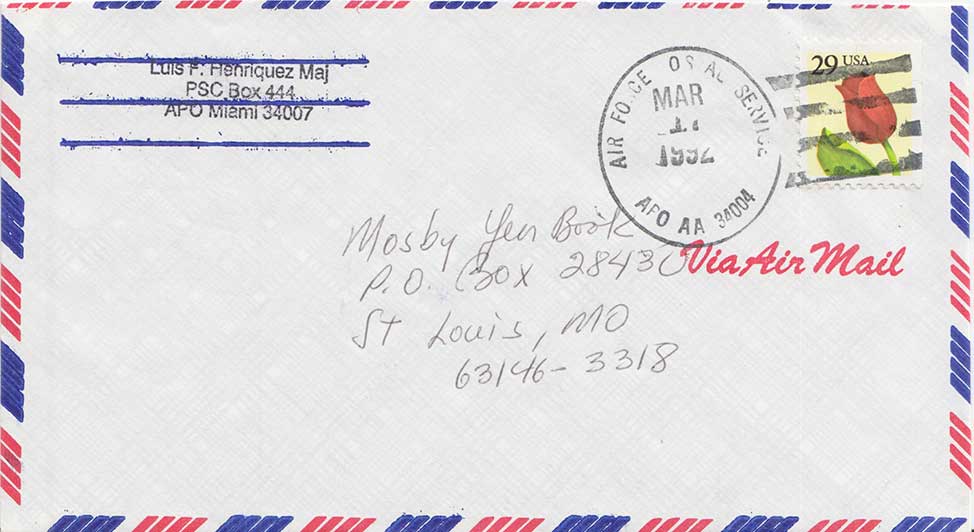 Luis F. Henriquez Maj
PSC Box 444
APO Miami 34007
AIR FORCE POSTAL SERVICE
MAR
17
1992
APO AA 34004
29 USA
Mosby Year Book
P.O. Box 28430
Via Air Mail
St Louis, MO
63146-3318